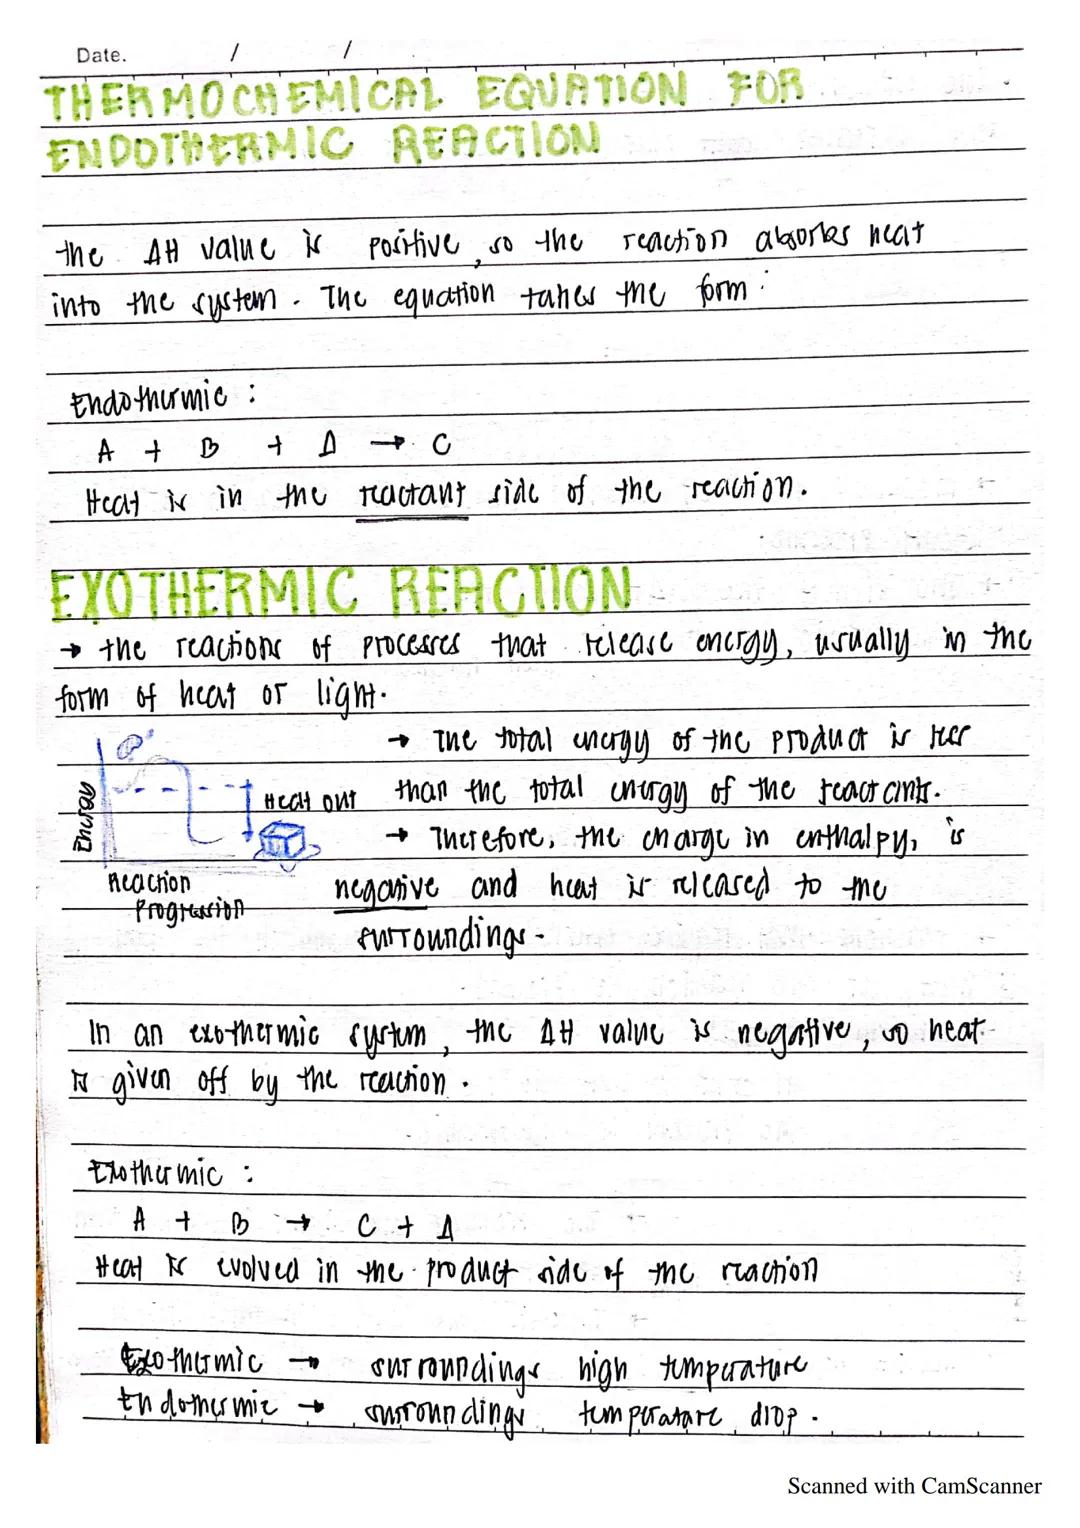 Date. / /
THERMOCHEMICAL EQUATION FOR
ENDOTHERMIC REACTION
the ΔH value is positive, so the reaction absorbs heat
into the system. The equation takes the form:
Endothermic :
A + B + Δ → C
Heat is in the reactant side of the reaction.
EXOTHERMIC REACTION
→ the reactions of processes that release energy, usually in the
form of heat or light.
→ The total energy of the product is less
than the total energy of the reactants.
→ Therefore, the change in enthalpy, is
negative and heat is released to the
surroundings.
Energy
Heat out
Reaction
Progression
In an exothermic system, the ΔH value is negative, so heat
is given off by the reaction.
Exothermic :
A + B → C + Δ
Heat is evolved in the product side of the reaction
Exothermic → surroundings high temperature
Endothermic → surroundings temperature drop.
Scanned with CamScanner